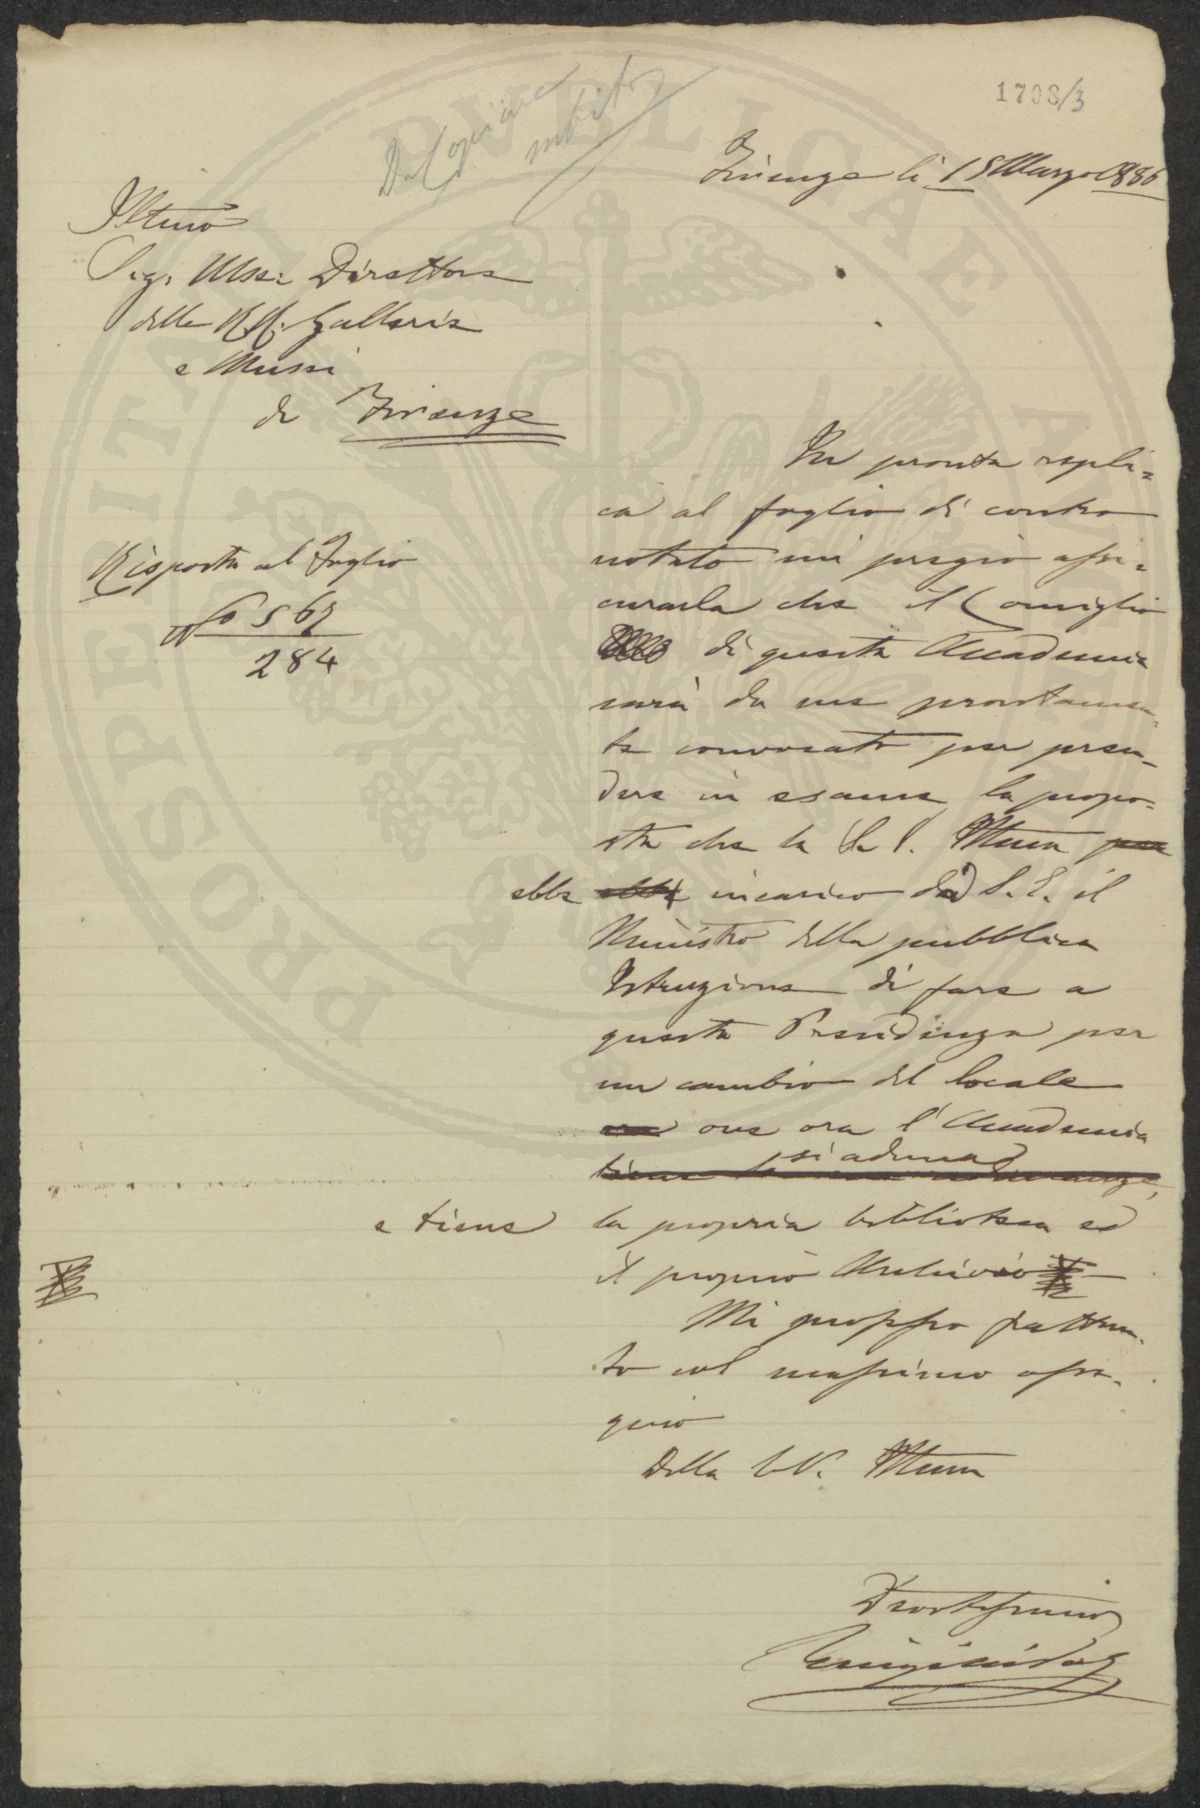 1708/3
Da copiare subito
Firenze li 15 Marzo 1886
Illmo
Sig. Mse: Direttore
delle RR. Gallerie
e Musei
di Firenze
Risposta al Foglio
No 6567
284
In pronta repli=
ca al foglio di contro
notato mi pregio assi=
curarla che il Consiglio
di questa Accademia
sarà da me prontamen=
te convocato per pren=
dere in esame la propo=
sta che la S. V. Illma
ebbe incarico da S. E. il
Ministro della pubblica
Istruzione di fare a
questa Presidenza per
un cambio del locale
ove ora l'Accademia
si aduna
e tiene la propria biblioteca ed
il proprio Archivio
Mi professo frattan=
to col massimo osse=
quio
Della S. V. Illma
Devotissimo